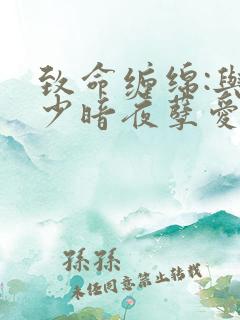 致命缠绵:與
少暗夜孽爱
孫孫
未经同意禁止转载